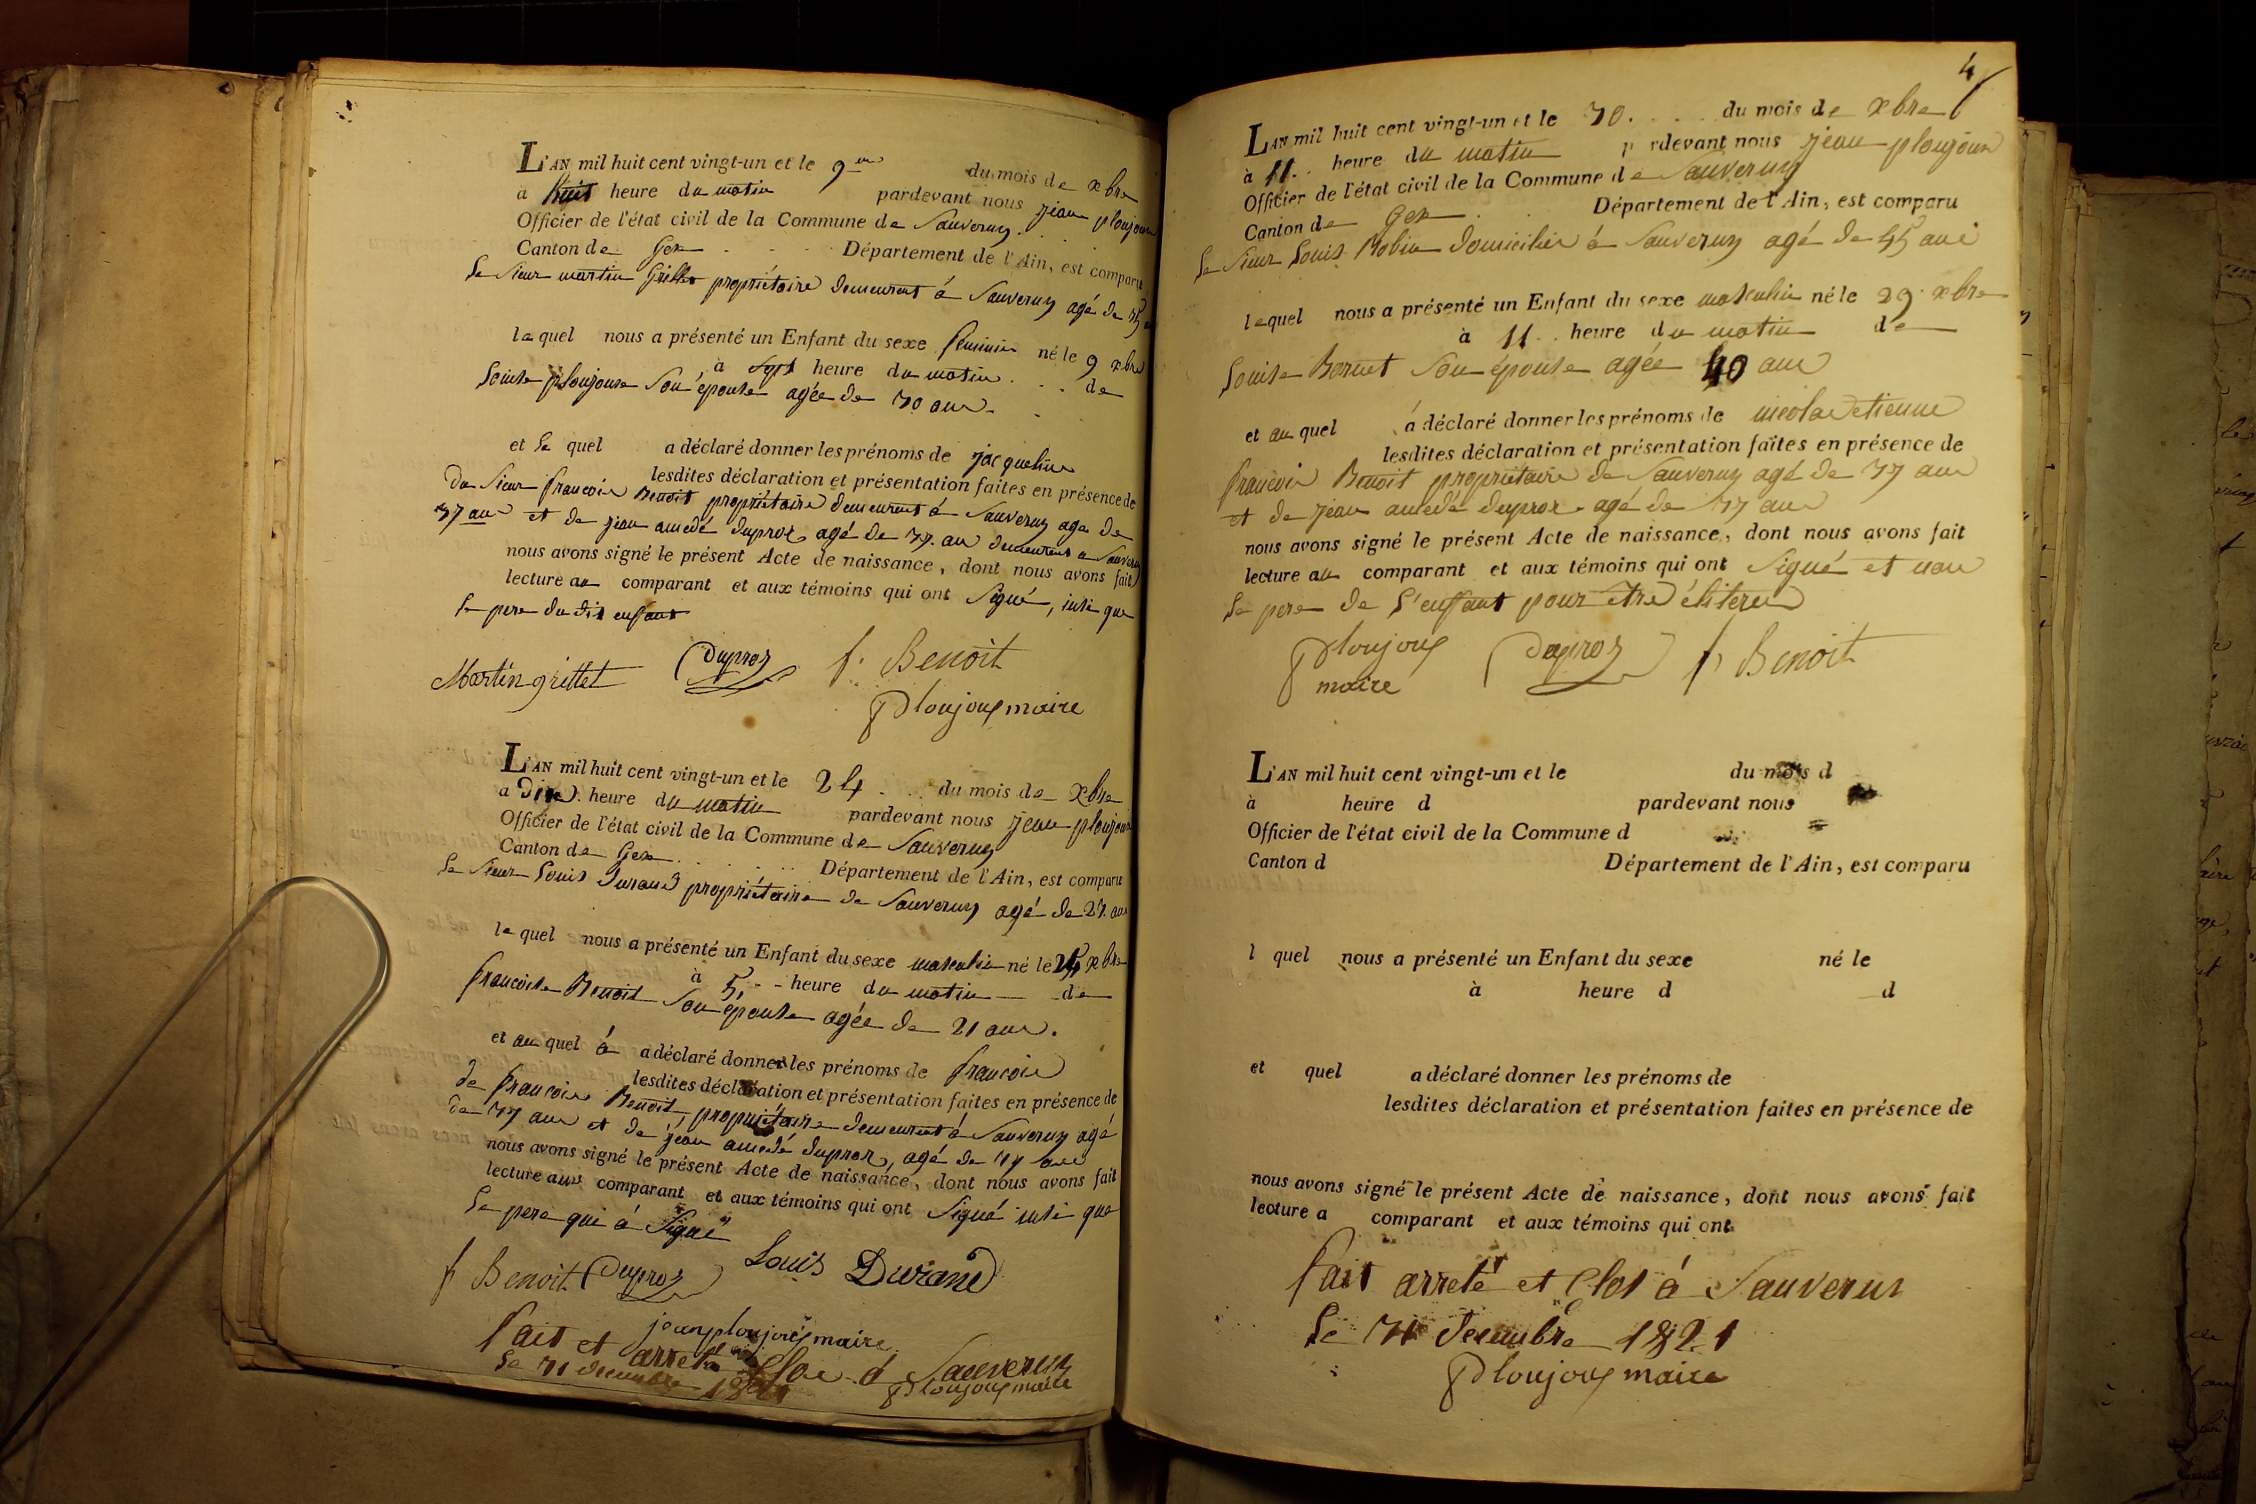 L'AN mil huit cent vingt-un et le 9me du mois de xbre
a huit heure du matin pardevant nous jean ploujoux
Officier de l'état civil de la Commune de Sauverny
Canton de Gex Département de l'Ain, est comparu
Le Sieur martin Grillet propriétaire demeurent á Sauverny agé de
le quel nous a présenté un Enfant du sexe feminin né le 9 xbre
à sept heure du matin de
Louise ploujoux Son épouse agée de 30 ans
et le quel a déclaré donner les prénoms de jacqueline
lesdites déclaration et présentation faites en présence de
du Sieur francois Benoit propriétaire demeurent á Sauverny age de
37 ans et de jean amedé duproz agé de 37 an demeurent a Sauverny
nous avons signé le présent Acte de naissance, dont nous avons fait
lecture au comparant et aux témoins qui ont Signé, insi que
le pere du dit enfant
Martin grillet Duproz f. Benoit
Ploujoux maire
L'AN mil huit cent vingt-un et le 24 du mois de xbre
a Dix heure du matin pardevant nous jean ploujoux
Officier de l'état civil de la Commune de Sauverny
Canton de Gex Département de l'Ain, est comparu
Le Sieur Louis Durand propriétaire de Sauverny agé de ans
le quel nous a présenté un Enfant du sexe masculin né le xbre
à 5 heure du matin de
francoise Benoit Son épouse agée de 21 ans.
et au quel á a déclaré donner les prénoms de francois
lesdites déclaration et présentation faites en présence de
de francois Benoit propriétaire demeurent á Sauverny agé
de 37 ans et de jean amedé duproz, agé de 37 ans
nous avons signé le présent Acte de naissance, dont nous avons fait
lecture aux comparant et aux témoins qui ont Signé insi que
le pere qui á Signé
f Benoit Duproz Louis Durand
jean ploujoux maire
fait et arreté clos á Sauverny
le 31 decembre 1821 Ploujoux maire
4
L'AN mil huit cent vingt-un et le 30 du mois de xbre
à 11 heure du matin p rdevant nous jean ploujoux
Officier de l'état civil de la Commune de Sauverny
Canton de Gex Département de l'Ain, est comparu
Le Sieur Louis Robin domicilié á Sauverny agé de 45 ans
lequel nous a présenté un Enfant du sexe masculin né le 29 xbre
à 11 heure du matin de
Louise Bornet Son épouse agée 40 ans
et au quel á déclaré donner les prénoms de nicolas etienne
lesdites déclaration et présentation faites en présence de
francois Benoit propriétaire de Sauverny agé de 37 ans
et de jean amedé duproz agé de 37 ans
nous avons signé le présent Acte de naissance, dont nous avons fait
lecture au comparant et aux témoins qui ont Signé et non
le pere de l'enfant pour être éliteré
Ploujoux Duproz f Benoit
maire
L'AN mil huit cent vingt-un et le du mois d
à heure d pardevant nous
Officier de l'état civil de la Commune d
Canton d Département de l'Ain, est comparu
l quel nous a présenté un Enfant du sexe né le
à heure d d
et quel a déclaré donner les prénoms de
lesdites déclaration et présentation faites en présence de
nous avons signé le présent Acte de naissance, dont nous avons fait
lecture a comparant et aux témoins qui ont
fait arreté et Clos á Sauverny
le 31 decembre 1821
Ploujoux maire